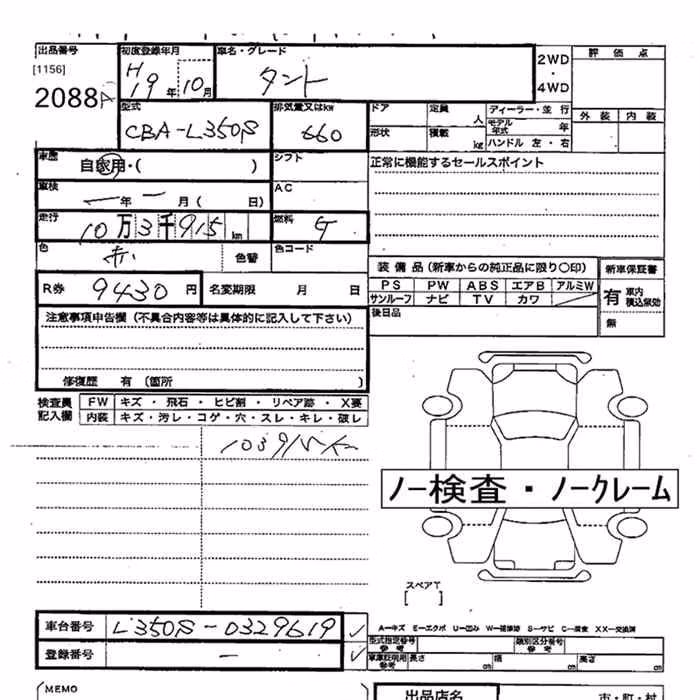 出品番号 初度登録年月 車名・グレード 2WD・4WD 評価点
[1156] H19年10月 タント
2088A
型式 排気量又はkw ドア 定員 人 ディーラー・並行 外装 内装
CBA-L350S 660 形状 積載 kg モデル年式 年
ハンドル 左・右
車歴 自家用・( ) シフト 正常に機能するセールスポイント
車検 ー年ー月( 日) AC
走行 10万3千915km 燃料 ガ
色 赤 色替 色コード
装備品(新車からの純正品に限り〇印) 新車保証書
R券 9430円 名変期限 月 日 PS PW ABS エアB アルミW 有 車内 積込無効
サンルーフ ナビ TV カワ
注意事項申告欄(不具合内容等は具体的に記入して下さい) 後日品 無
修復歴 有(箇所 )
検査員記入欄 FW キズ・飛石・ヒビ割・リペア跡・X要
内装 キズ・汚レ・コゲ・穴・スレ・キレ・破レ
103915K
ノー検査・ノークレーム
スペアT
[ ]
車台番号 L350S-0329619 ✓ A-キズ E-エクボ U-凹み W-補修跡 S-サビ C-腐食 XX-交換済
型式指定番号 参考 類別区分番号 参考
登録番号 ー ✓ 車庫証明用 参考 長さ cm 幅 cm 高さ cm
MEMO 出品店名 市・町・村